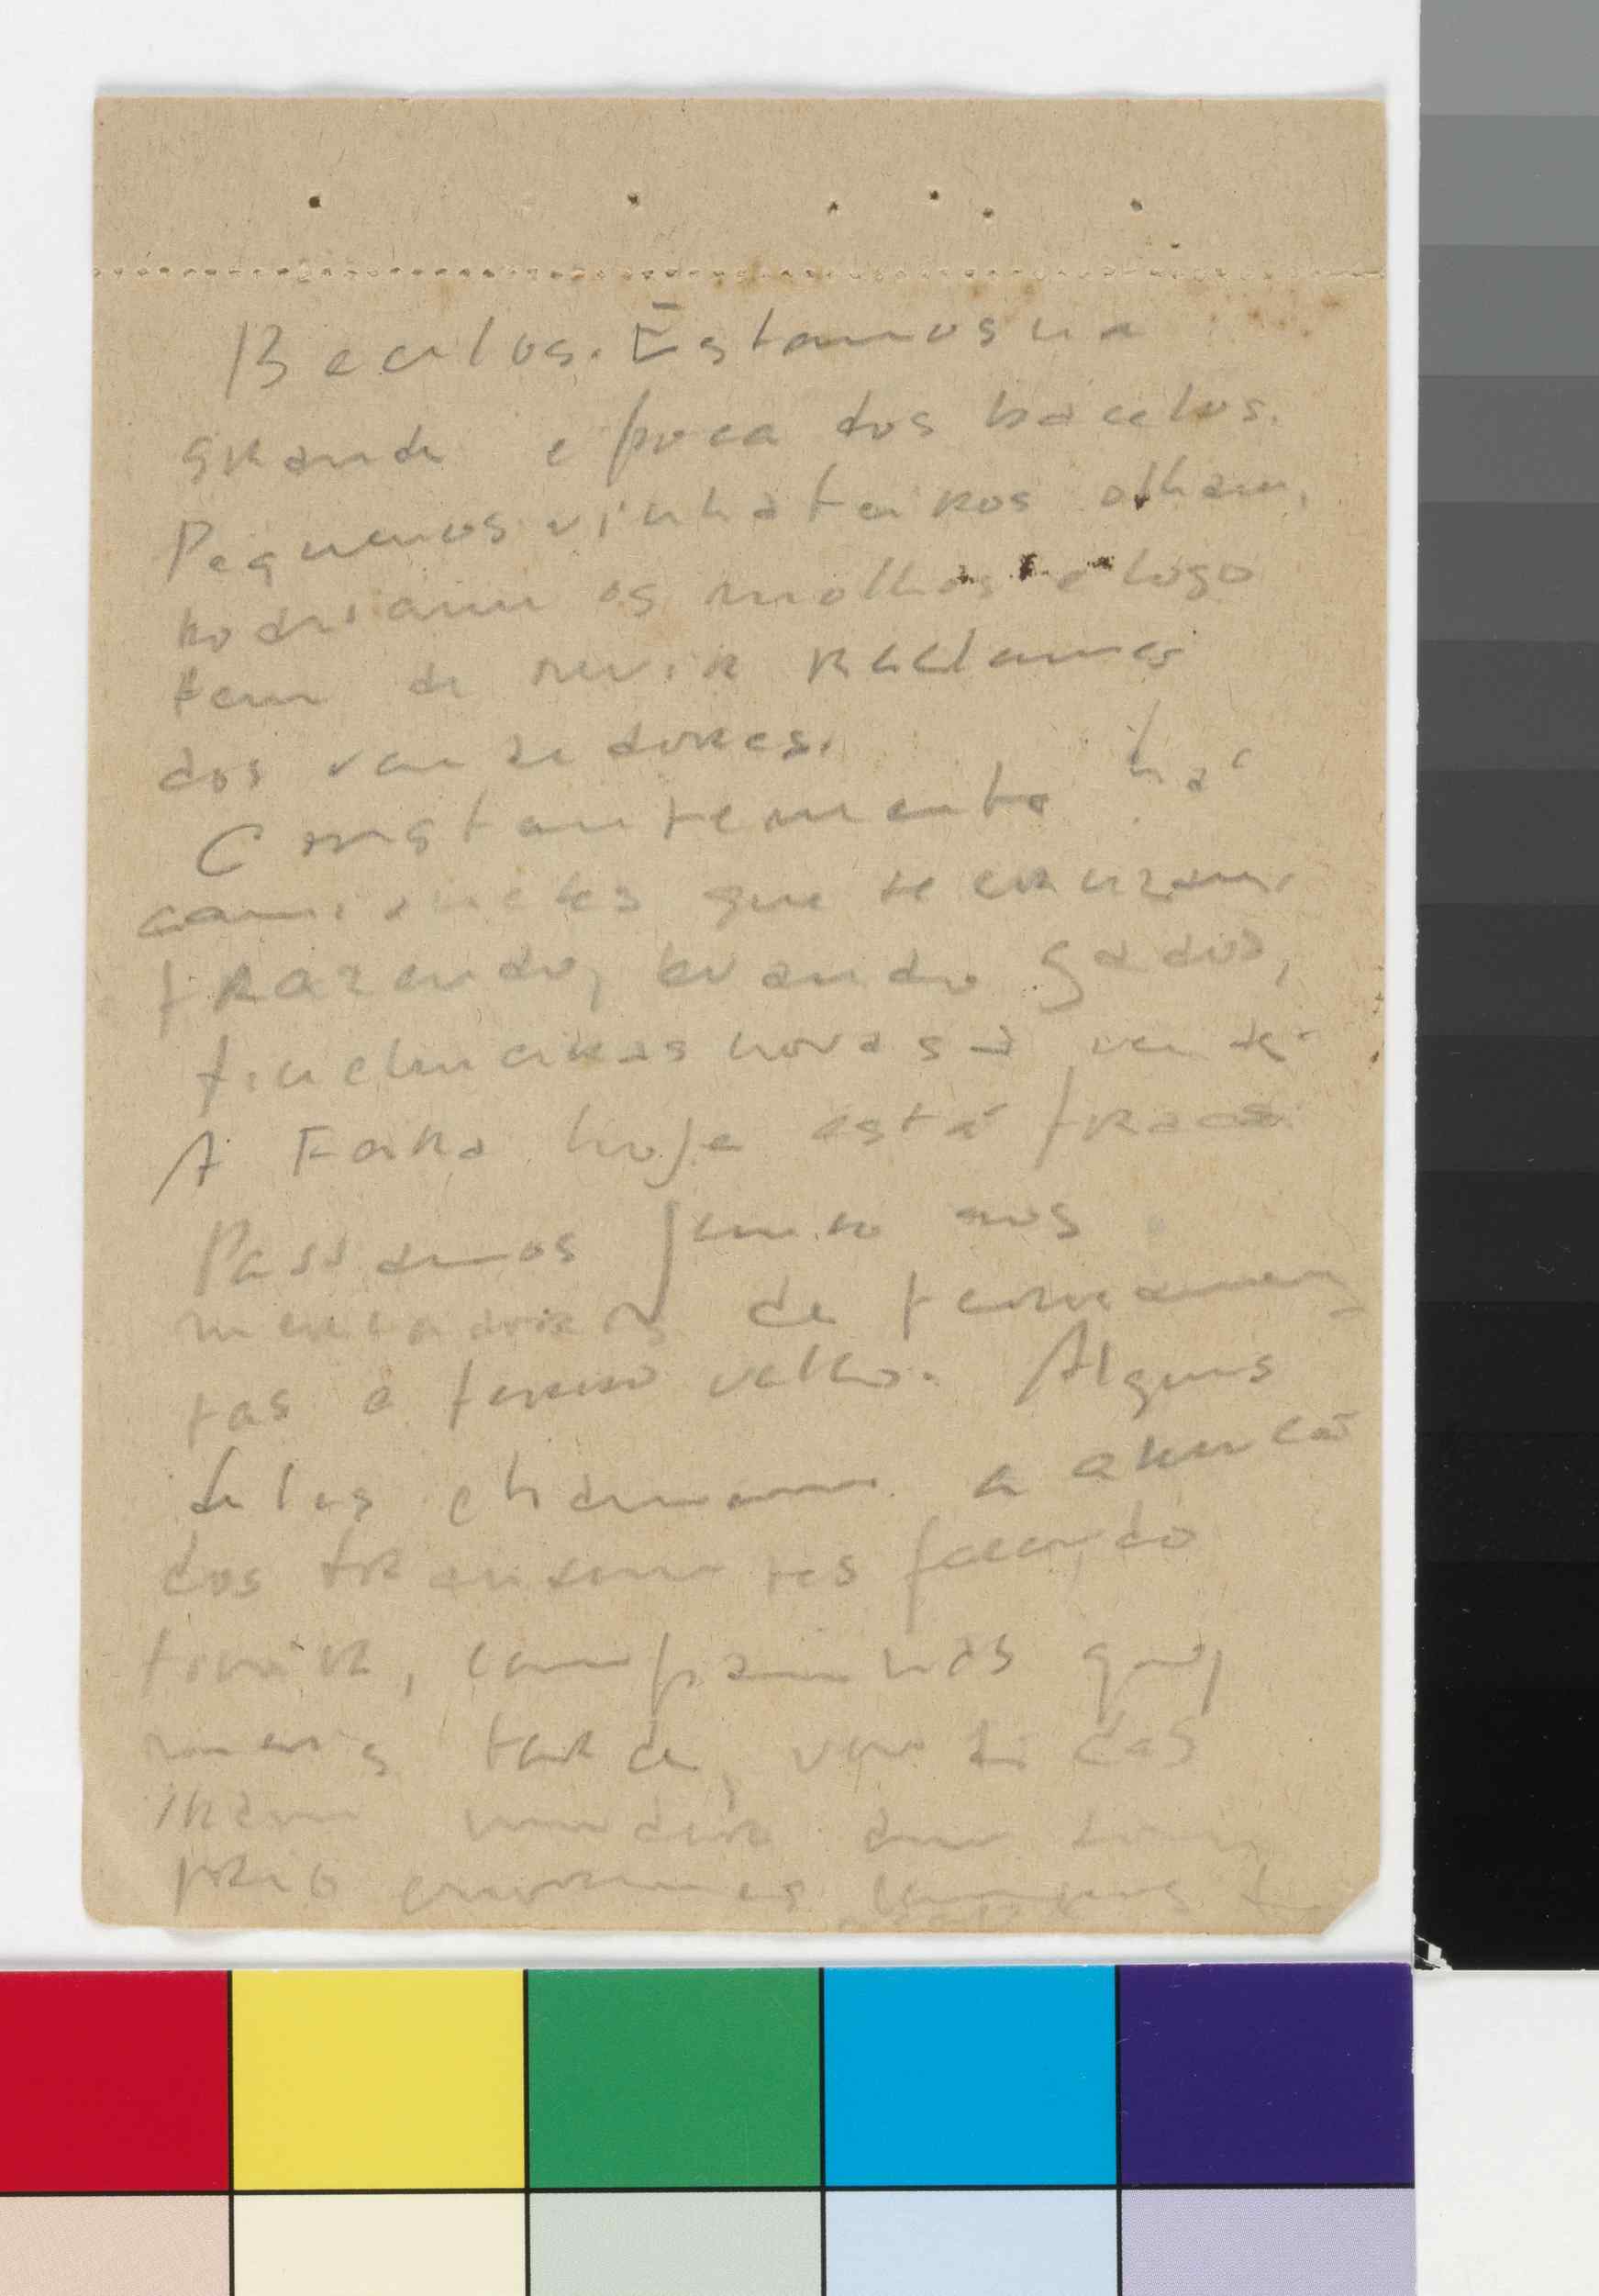 Bacelos. Estamos na
grande epoca dos bacelos.
Pequenos vinhateiros olham,
rodeiam os molhos e logo
tem de ouvir reclames
dos vendedores.
Constantemente há
camionetes que se cruzam,
trazendo, levando gados,
trincheiras novas a vender
A Feira hoje está fraca
Passamos junto aos
mercadores de ferramen
tas e ferro velho. Alguns
deles chamam a atenção
dos transeuntes fazendo
tinir, campainhas que,
mais tarde, vendidas
irão